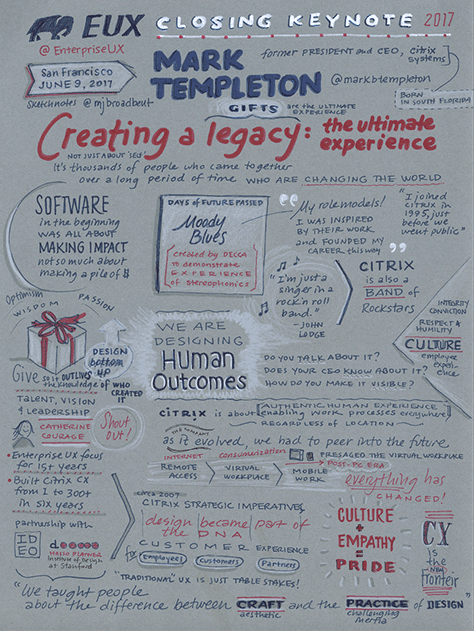 EUX CLOSING KEYNOTE 2017
@EnterpriseUX
San Francisco
JUNE 9, 2017
sketchnotes @mjbroadbent
MARK
TEMPLETON
former PRESIDENT and CEO, citrix
systems
@markbtempleton
BORN
IN SOUTH FLORIDA
GIFTS are the ULTIMATE
EXPERIENCE
Creating a legacy: the ultimate
experience
NOT JUST ABOUT 'SELF'
It's thousands of people who came together
over a long period of time WHO ARE CHANGING THE WORLD
SOFTWARE
in the beginning
WAS ALL ABOUT
MAKING IMPACT
not so much about
making a pile of $
DAYS OF FUTURE PASSED
Moody
Blues
created by DECCA
to demonstrate
EXPERIENCE
of stereophonics
My role models!
I WAS INSPIRED
BY THEIR WORK
and FOUNDED MY
CAREER this way
"I joined
CITRIX in
1995, just
before we
went public"
"I'm just a
singer in a
rock'n roll
band."
-JOHN
LODGE
CITRIX
is also a
BAND of
Rockstars
INTEGRITY
CONVICTION
RESPECT &
HUMILITY
CULTURE
employee
experi-
ence
Optimism
WISDOM
PASSION
DESIGN
bottom
UP
Give so it OUTLIVES
the knowledge of WHO
CREATED
IT
TALENT, VISION
& LEADERSHIP
WE ARE
DESIGNING
Human
Outcomes
DO YOU TALK ABOUT IT?
DOES YOUR CEO KNOW ABOUT IT?
HOW DO YOU MAKE IT VISIBLE?
CATHERINE
COURAGE
Shout
out!
• Enterprise UX focus
for 15+ years
• Built Citrix CX
from 1 to 300+
in six years
partnership with
IDEO
d
HASSO PLATTNER
Institute of design
at Stanford
CITRIX is about AUTHENTIC HUMAN EXPERIENCE
enabling work processes everywhere
REGARDLESS OF LOCATION
THE COMPANY
as it evolved, we had to peer into the future
INTERNET consumerization PRESAGED THE VIRTUAL WORKPLACE
REMOTE
ACCESS
VIRTUAL
WORKPLACE
MOBILE
WORK
POST-PC ERA
everything has
CHANGED!
circa 2007
CITRIX STRATEGIC IMPERATIVES
design became part of
the DNA
CUSTOMER EXPERIENCE
for employees customers Partners
"TRADITIONAL" UX IS JUST TABLE STAKES!
CULTURE
+
EMPATHY
=
PRIDE
CX
is the
new
Frontier
"We taught people
about the difference between CRAFT and the PRACTICE of DESIGN"
aesthetic
challenging
inertia